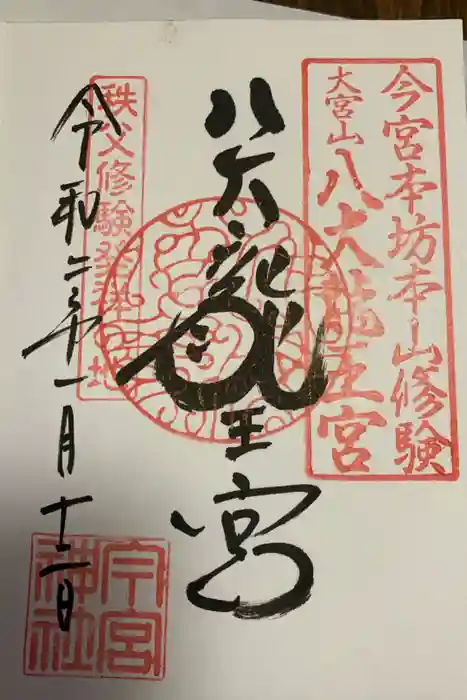 今宮本坊本山修験
大宮山八大龍王宮
八大龍王宮
秩父修験発祥地
令和二年一月十二日
今宮神社